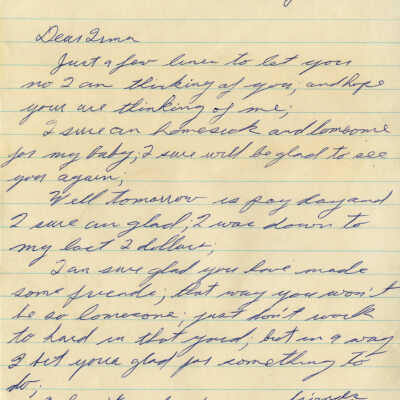 Dear Irma
Just a few lines to let you
no I am thinking of you, and hope
your are thinking of me;
I sure am homesick and lonesome
for my baby; I sure will be glad to see
you again;
Well tomorrow is pay day and
I sure am glad; I was down to
my last 2 dollars;
I am sure glad you have made
some friends; that way you won't
be so lonesome; just don't work
to hard in that yard; but in a way
I bet your glad for something to
do;
friends